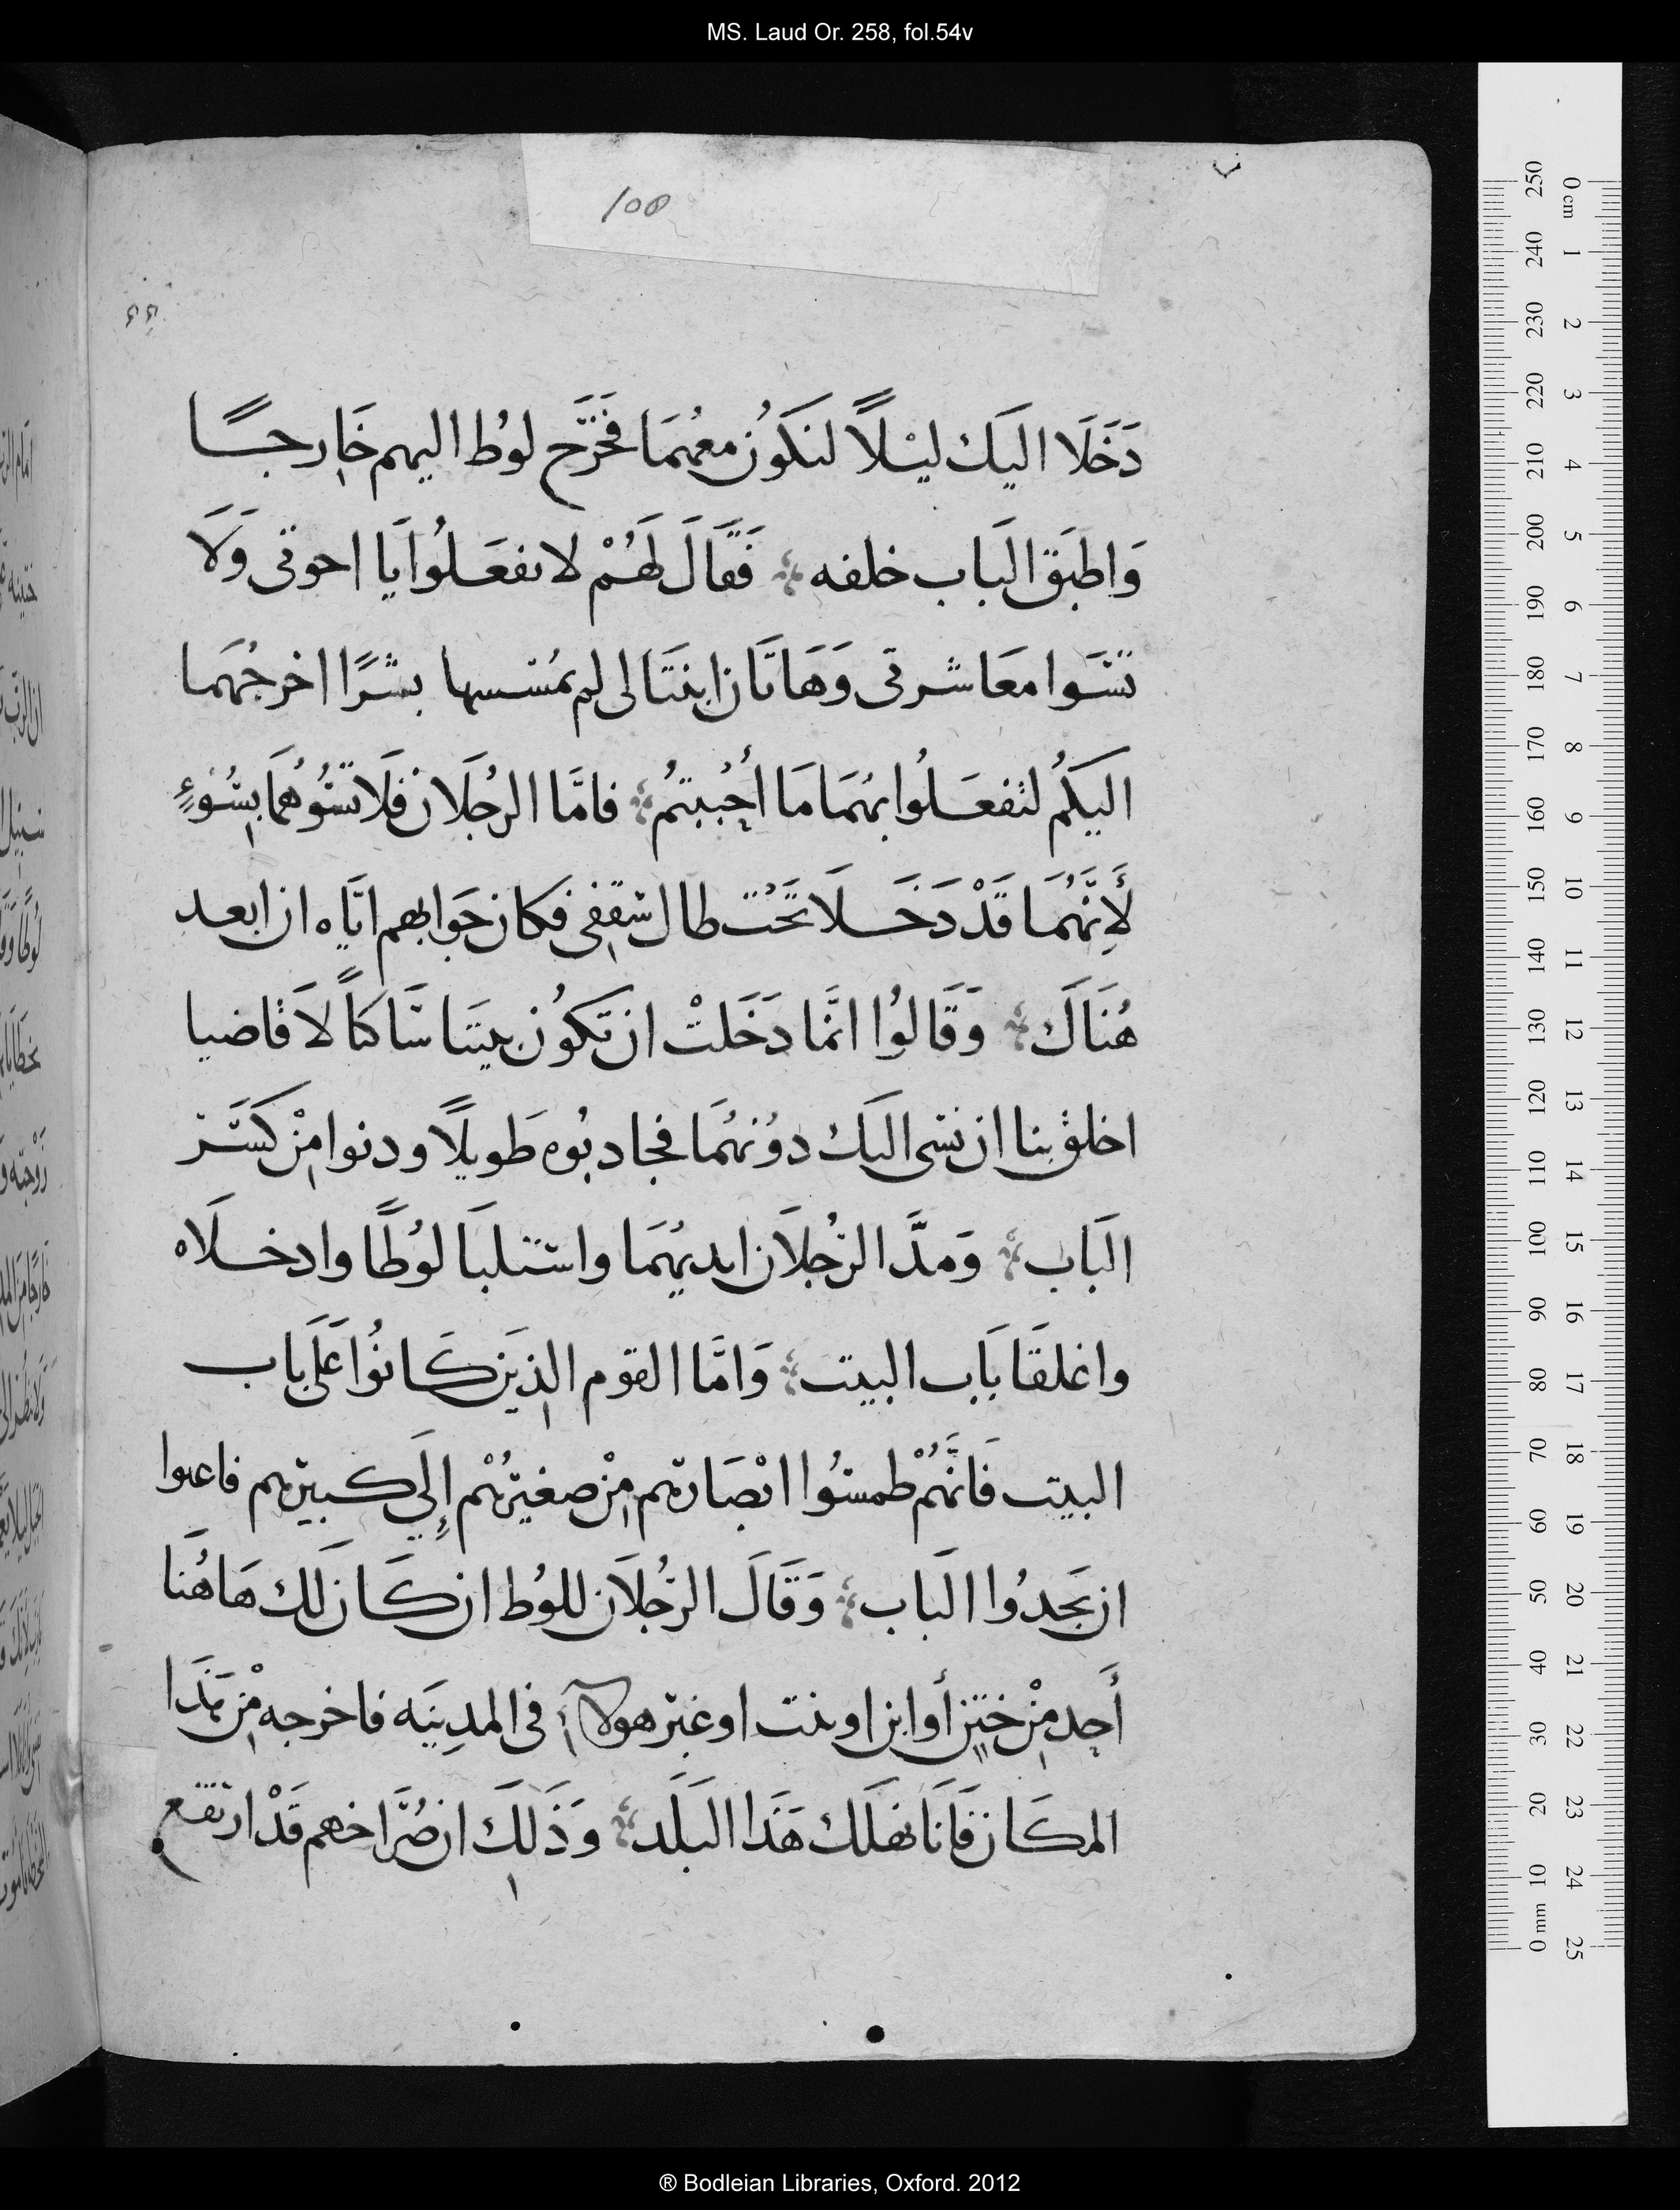 MS. Laud Or. 258, fol.54v
108
دَخَلَا اليَك ليْلاً لنَكوُن معهُمَا فَخَرَّج لوُط اليهم خَارِجًا
وَاطبَق البَاب خلفه فَقَالَ لَهُمْ لا تفعَلوُا يَا اخوتى وَلَا
تسَوا معَاشرتى وَهَاتَان ابنتَا لى لم يمُسسها بشرًا اخرجُهمَا
اليكمُ لتفعَلُوا بهمَا مَا أحْببتمُ فامَّا الرجُلَان فَلَا تسُّوُهُمَا بسُوُءٍ
لأَنَّهُمَا قَدْ دَخَلَا تَحُت طلال سَقِفِى فكان جَوَابهم ايَّاه ان ابعد
هُنَاكَ وَقَالوُا انمَّا دَخَلتْ ان تَكوُن بيتنا سَاكناً لَا قَاضيا
اخلق بنا ان نسى اليَك دوُنهُمَا فجادبوُه طَويلًا ودنوا مِنْ كَسَر
البَاب وَمدَّ الرجُلَان ايديهُمَا واستلبَا لوُطًا وادخلَاه
واغلقَا بَاب البيت وَامَّا القوم الذِيَن كَانوُا عَلَى بَاب
البيت فَانَّهُمْ طمسُوا ابْصَارهم مِنْ صغيرهُمْ إِلَى كبيرهم فاعيوا
ان يَجدوُا البَاب وَقَالَ الرجُلَان للوُط ان كَان لَك هَاهُنَا
أَحِد مِنْ ختِنٍ أو ابن او بنت او غير هولاءِ فى المدِينَه فاخرجه مِنْ هَذَا
المكَان فَانَا نهلَك هَذَا البَلَد وَذَلِكَ ان صُرَّاخهم قَدْ ارتفع
® Bodleian Libraries, Oxford. 2012